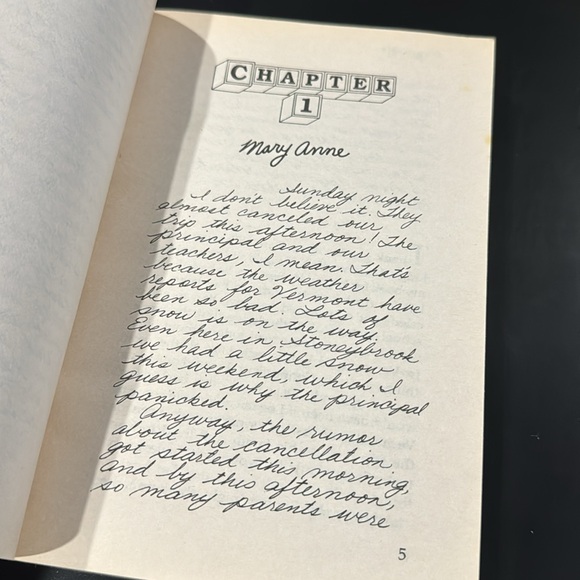 CHAPTER
1
Mary Anne
Sunday night
I don't believe it. They
almost canceled our
trip this afternoon! The
principal and our
teachers, I mean. That's
because the weather
reports for Vermont have
been so bad. Lots of
snow is on the way.
Even here in Stoneybrook
we had a little snow
this weekend, which I
guess is why the principal
panicked.
Anyway, the rumor
about the cancellation
got started this morning,
and by this afternoon,
so many parents were
5